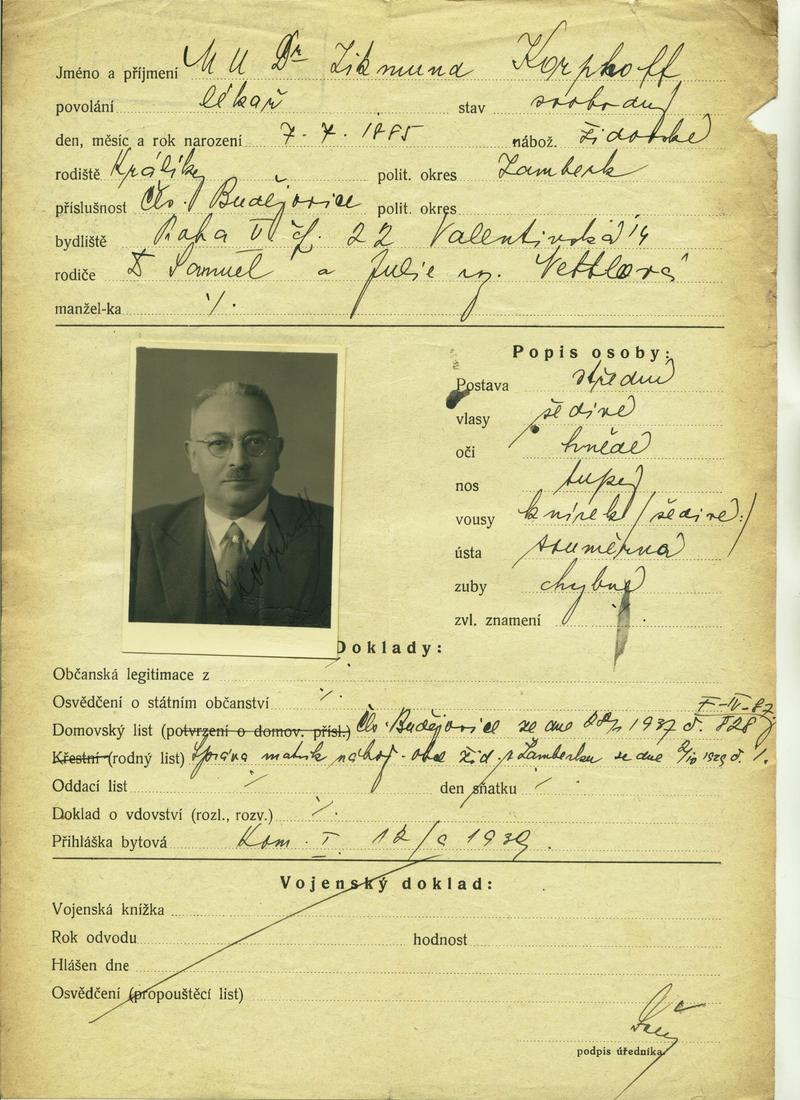 Jméno a příjmení MUDr Zikmund Korpkoff
povolání lékař stav svobodný
den, měsíc a rok narození 7. 7. 1885 nábož. židovské
rodiště Králíky polit. okres Žamberk
příslušnost Čes. Budějovice polit. okres
bydliště Praha V. čp. 22 Valentinská 14
rodiče Samuel a Julie roz.
manžel-ka ·/.
Popis osoby:
Postava střední
vlasy šedivé
oči hnědé
nos tupý
vousy knírek (šedivé)
ústa souměrná
zuby chybné
zvl. znamení
Doklady:
Občanská legitimace z
Osvědčení o státním občanství ·/.
Domovský list (potvrzení o domov. přísl.) Čes. Budějovice ze dne 1937 č.
Křestní (rodný list) Správa matrik nábož. obce žid. v Žamberku ze dne
Oddací list ·/. den sňatku ·/.
Doklad o vdovství (rozl., rozv.) ·/.
Přihláška bytová Kom. I. 1939.
Vojenský doklad:
Vojenská knížka
Rok odvodu hodnost
Hlášen dne
Osvědčení (propouštěcí list)
podpis úředníka